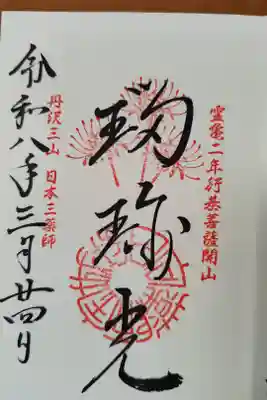 霊亀二年行基菩薩開山
瑠璃光
丹沢三山 日本三薬師
令和八年三月廿四日